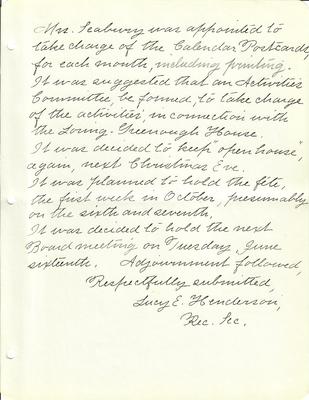 Mrs. Seabury was appointed to
take charge of the Calendar Postcards,
for each month, including printing.
It was suggested that an Activities
Committee, be formed, to take charge
of the activities, in connection with
the Loring-Greenough House.
It was decided to keep "open house",
again, next Christmas Eve.
It was planned to hold the fête,
the first week in October, presumably
on the sixth and seventh.
It was decided to hold the next
Board meeting on Tuesday, June
sixteenth. Adjournment followed,
Respectfully submitted,
Lucy E. Henderson,
Rec. Sec.